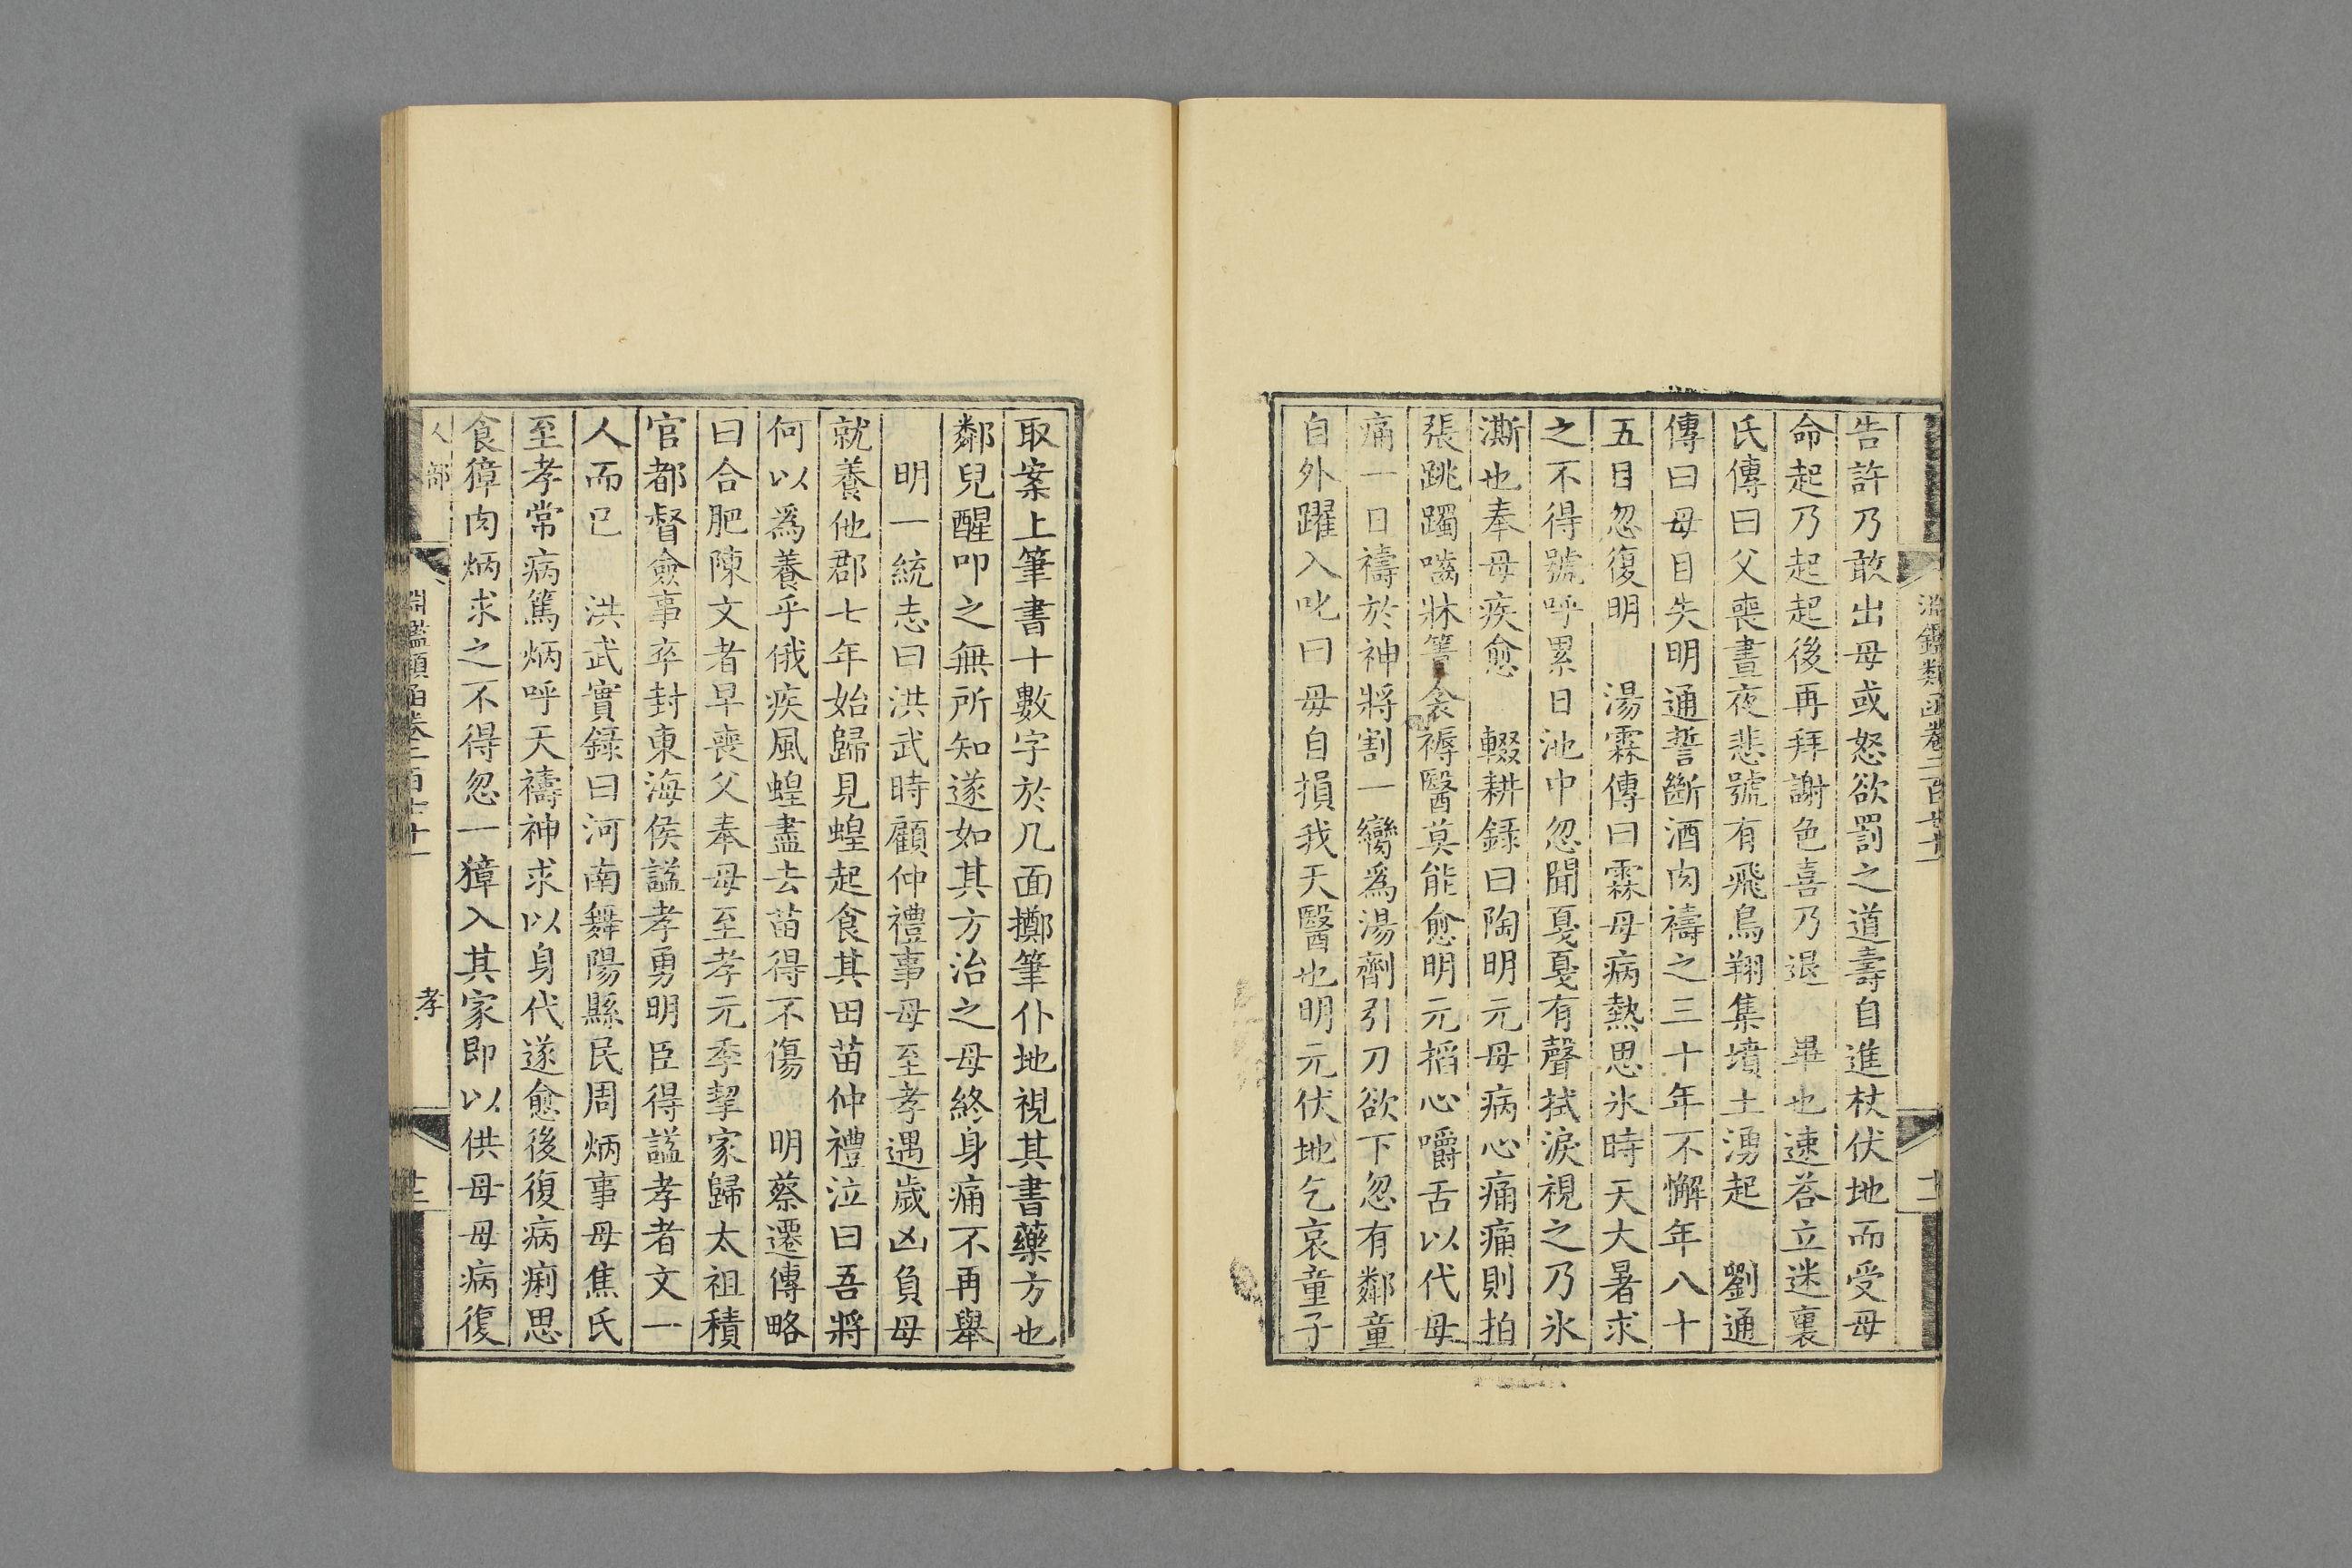 告許乃敢出母或怒欲罰之道壽自進杖伏地而受母
命起乃起起後再拜謝色喜乃退　畢也速荅立迷裏
氏傳曰父喪晝夜悲號有飛鳥翔集墳土湧起　劉通
傳曰母目失明通誓斷酒肉禱之三十年不懈年八十
五目忽復明　湯霖傳曰霖母病熱思氷時天大暑求
之不得號呼累日池中忽聞戛戛有聲拭淚視之乃氷
澌也奉母疾愈　輟耕錄曰陶明元母病心痛痛則拍
張跳躅嚙牀簀衾褥醫莫能愈明元搯心嚼舌以代母
痛一日禱於神將割一臠爲湯劑引刀欲下忽有鄰童
自外躍入叱曰毋自損我天醫也明元伏地乞哀童子
取案上筆書十數字於几面擲筆仆地視其書藥方也
鄰兒醒叩之無所知遂如其方治之母終身痛不再舉
明一統志曰洪武時顧仲禮事母至孝遇歲凶負母
就養他郡七年始歸見蝗起食其田苗仲禮泣曰吾將
何以爲養乎俄疾風蝗盡去苗得不傷　明蔡遷傳略
曰合肥陳文者早喪父奉母至孝元季挈家歸太祖積
官都督僉事卒封東海侯謚孝勇明臣得謚孝者文一
人而已　洪武實錄曰河南舞陽縣民周炳事母焦氏
至孝常病篤炳呼天禱神求以身代遂愈後復病痢思
食獐肉炳求之不得忽一獐入其家即以供母母病復
人部
孝